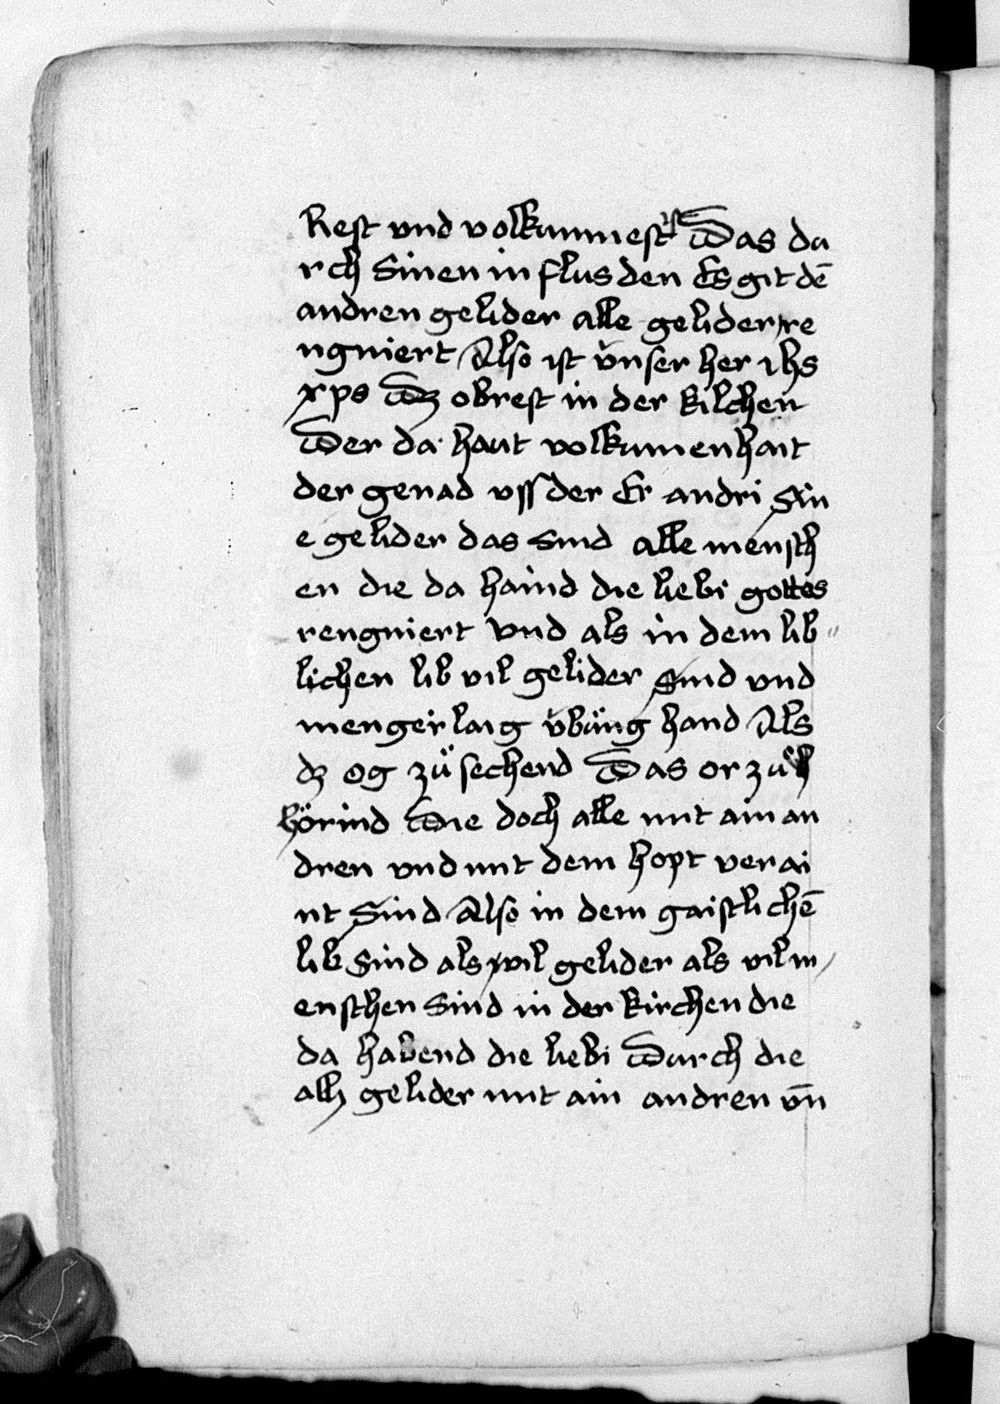 Rest vnd volkummest ist Das du
rch Sinen in flus den Es git dē
andren gelider alle gelider re
ngniert Also ist v̈nser her ihs
xps Dz obrest in der kilchen
Der da haut volkumenhait
der genad vss der Er andri Sin
e gelider das sind alle mensch
en die da haind die liebi gottes
rengniert Vnd als in dem lib〃
lichen lib vil gelider Sind vnd
mengerlaig v̈bung hand Als
dz og zů sechend Das or zů
hörind Die doch alle mit ain an
dren vnd mit dem hopt verai
nt Sind Also in dem gaistlichē
lib Sind als vil gelider als vil m
enschen Sind in der kirchen die
da habend die liebi Durch die
all gelider mit ain andren vn̄